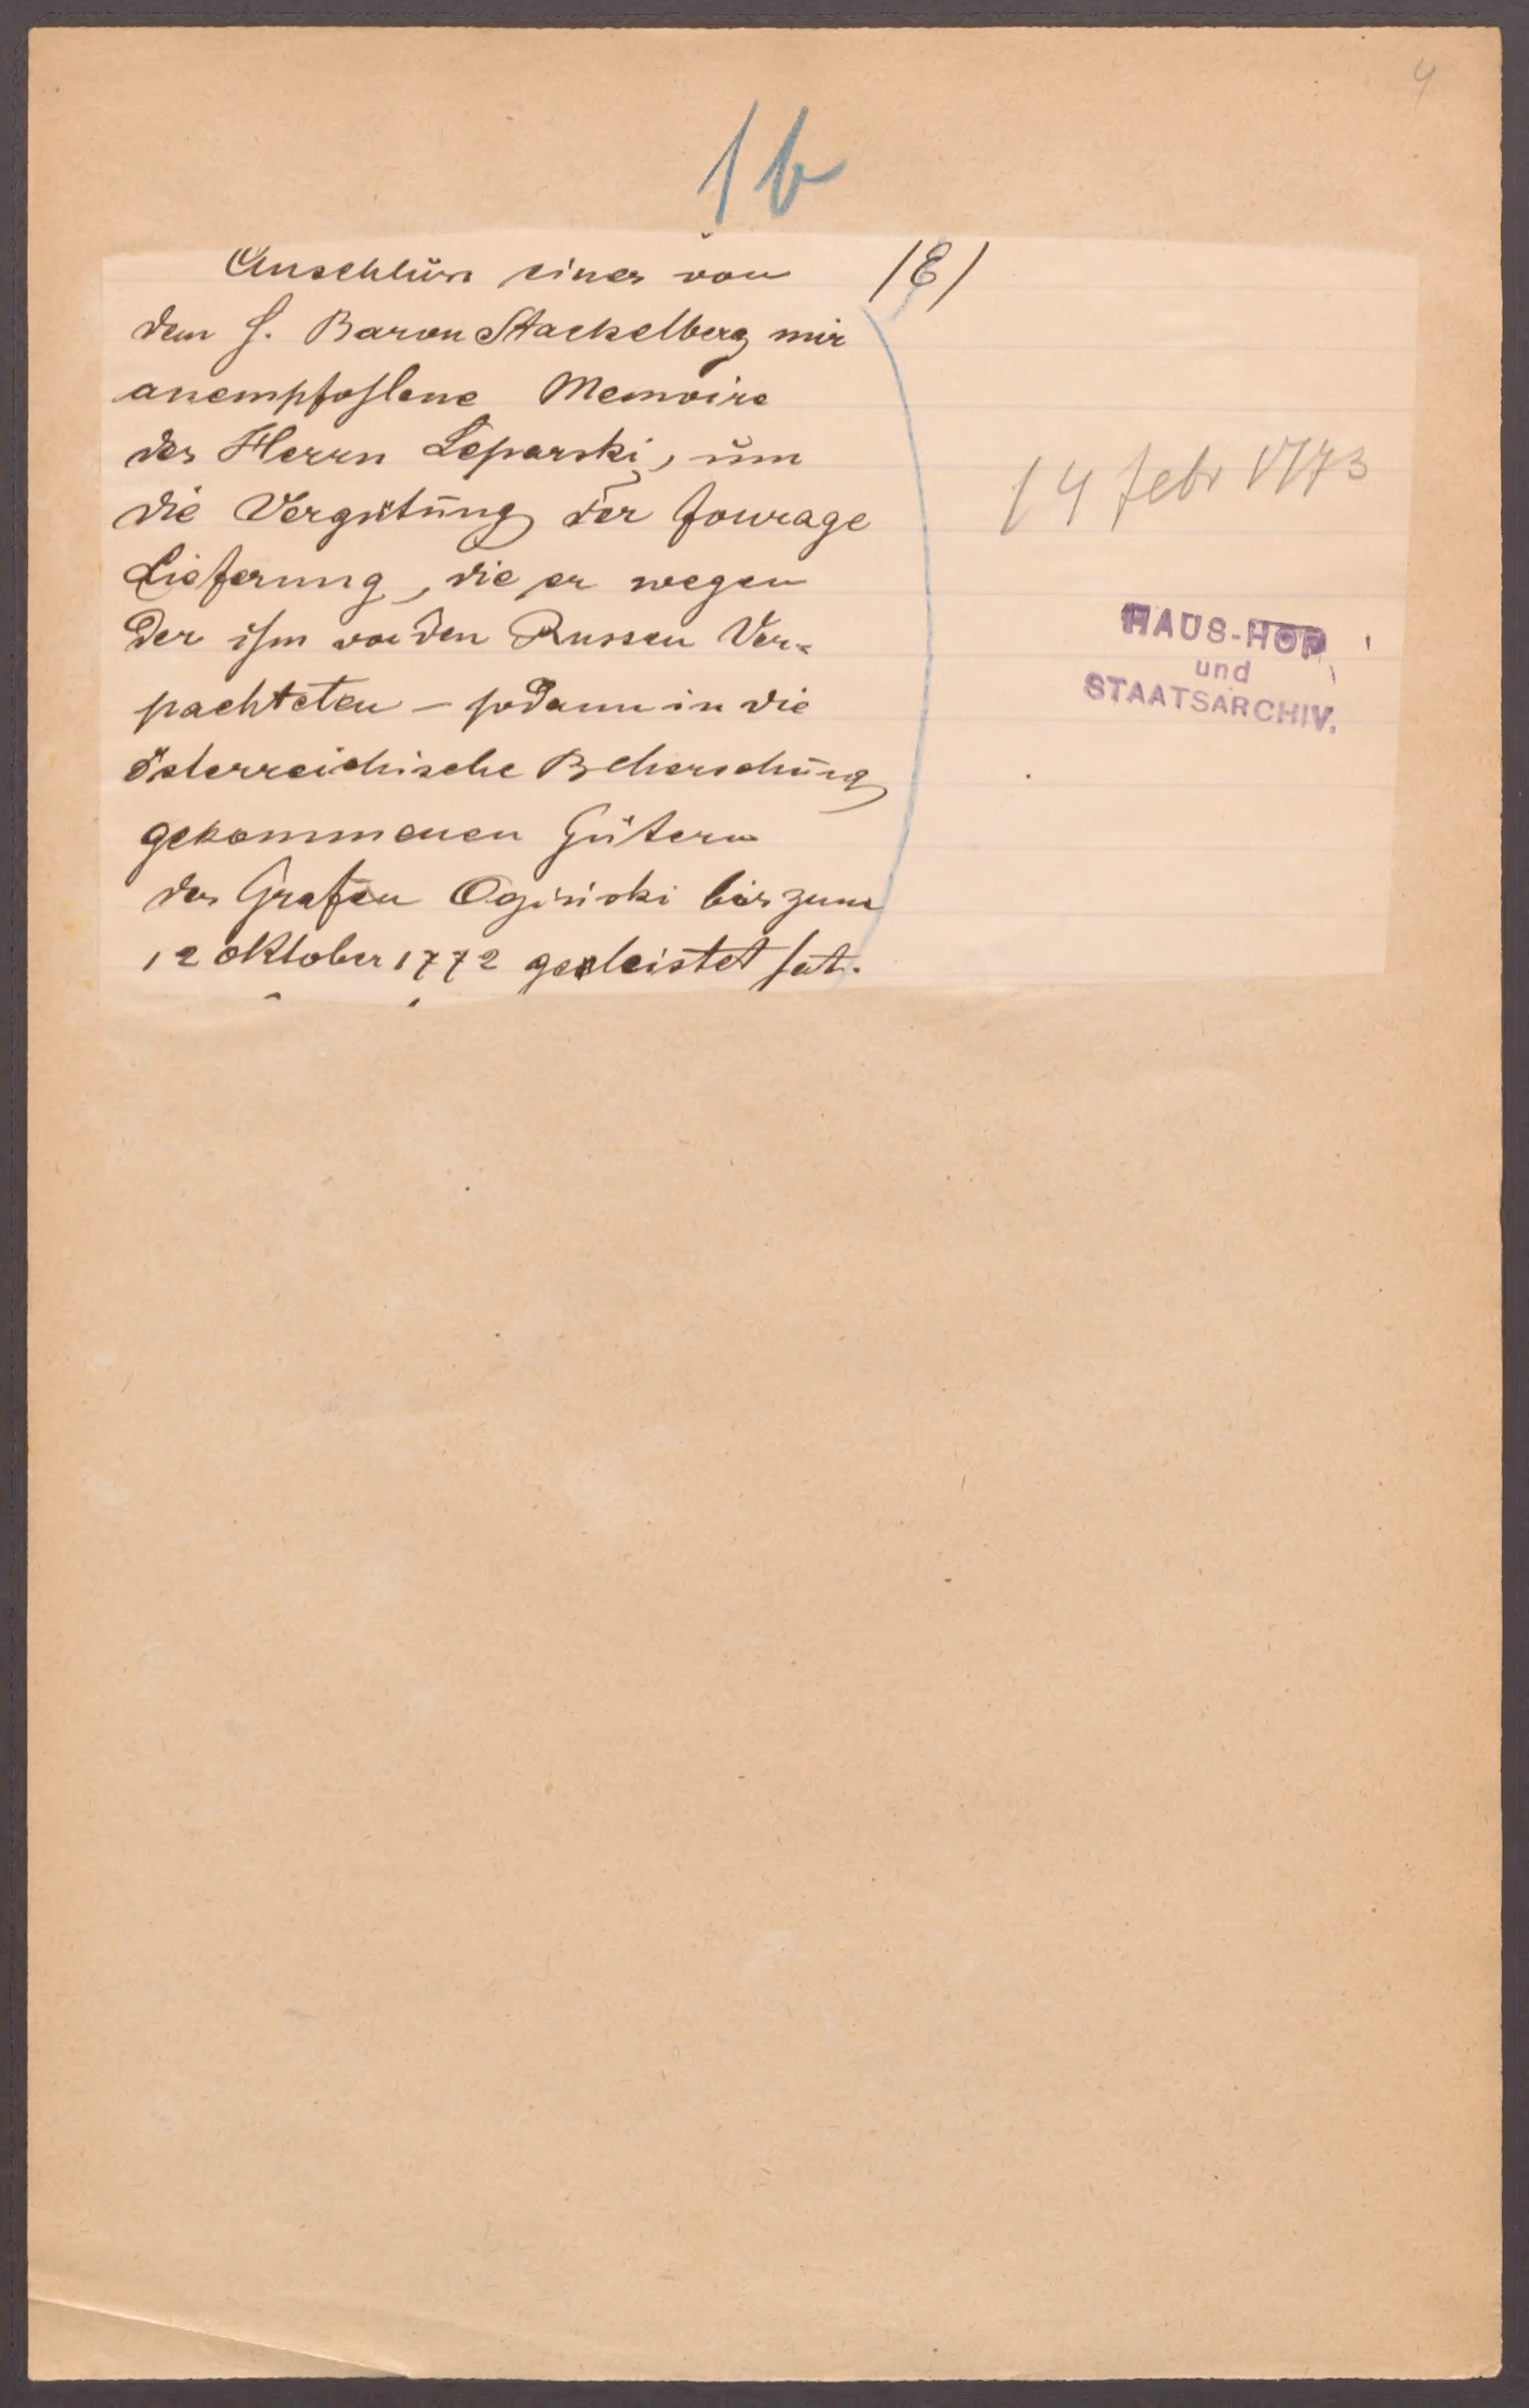 4
1b
Anschluss eines von /E/
dem H. Baron Stackelberg mir
anempfohlene Memoire
des Herrn Leparski, um
die Vergütung der fourage
Lieferung, die er wegen
der ihm von den Russen Ver-
pachteten – sodann in die
österreichische Beherschung
gekommenen Gütern
des Grafen Oginski bis zum
12 oktober 1772 geleistet hat.
14 febr 1773
HAUS-HOF
und
STAATSARCHIV.